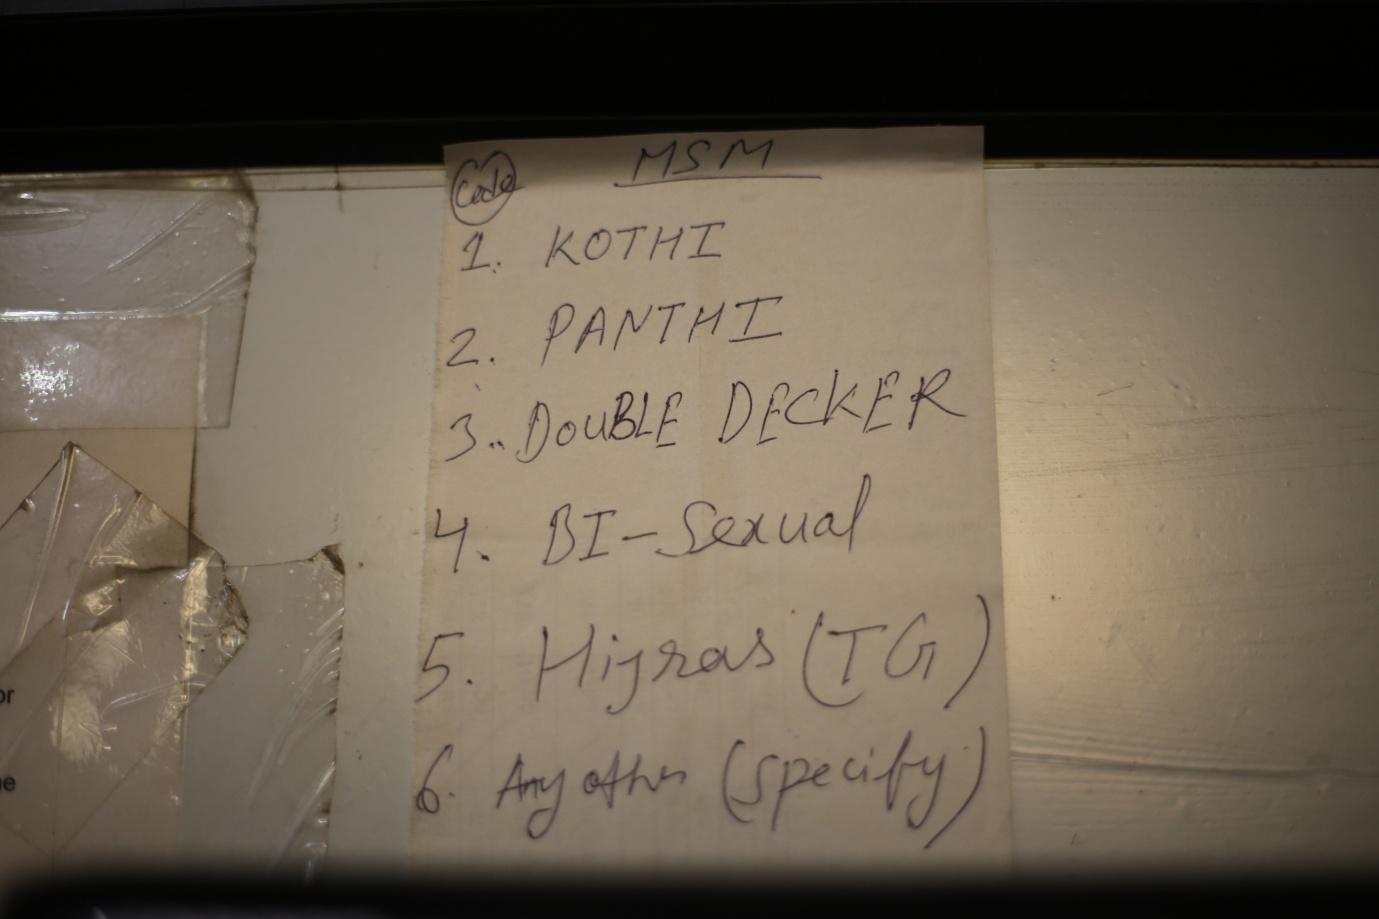 Code MSM
1. KOTHI
2. PANTHI
3. DOUBLE DECKER
4. BI-Sexual
5. Hijras (TG)
6. Any other (specify)
or